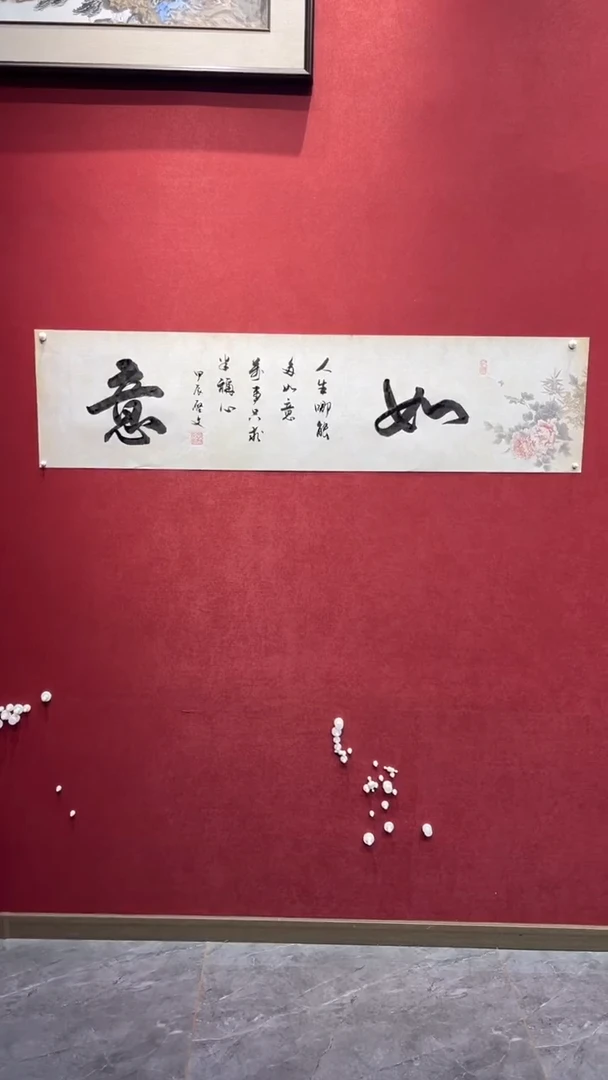 如
人生哪能
多如意
萬事只求
半稱心
甲辰
意